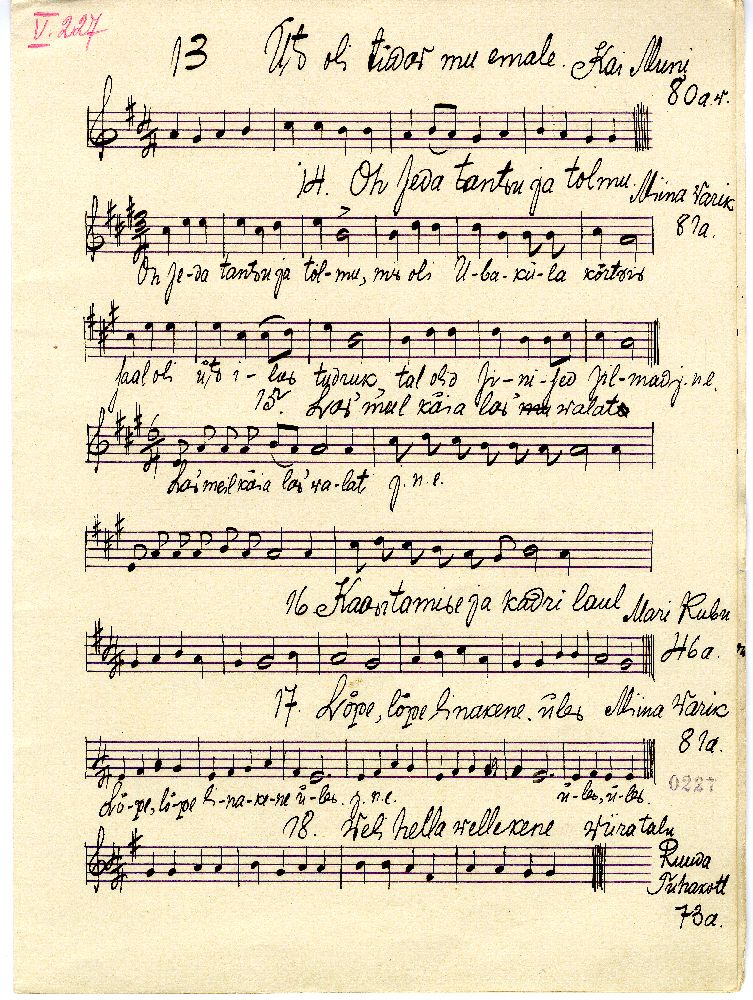 V. 227
13 Üts oli tüdar mu emale. Kai Muni
80 a.v.
14. Oh jeda tantsu ja tolmu. Miina Varik
81a.
Oh je-da tantsu ja tol-mu, mis oli U-ba-kü-la körtsis
jaal oli üts i-las tüdruk, tal olid si-ni-sed sil-mad j.n.e.
15. Las' meil käia las' walato
Las' meil käia las' wa-lat j.n.e.
16 Kaasitamise ja kadri laul Mari Kubu
46a.
17. Lõpe, lõpe linakene. üles Miina Varik
81a.
0227
Lõ-pe, lõ-pe li-na-ke-ne ü-les. j.n.e. ü-les, ü-les.
18. Weli hella wellekene Wiiratalu
Ruuda
Tuhakott
73a.